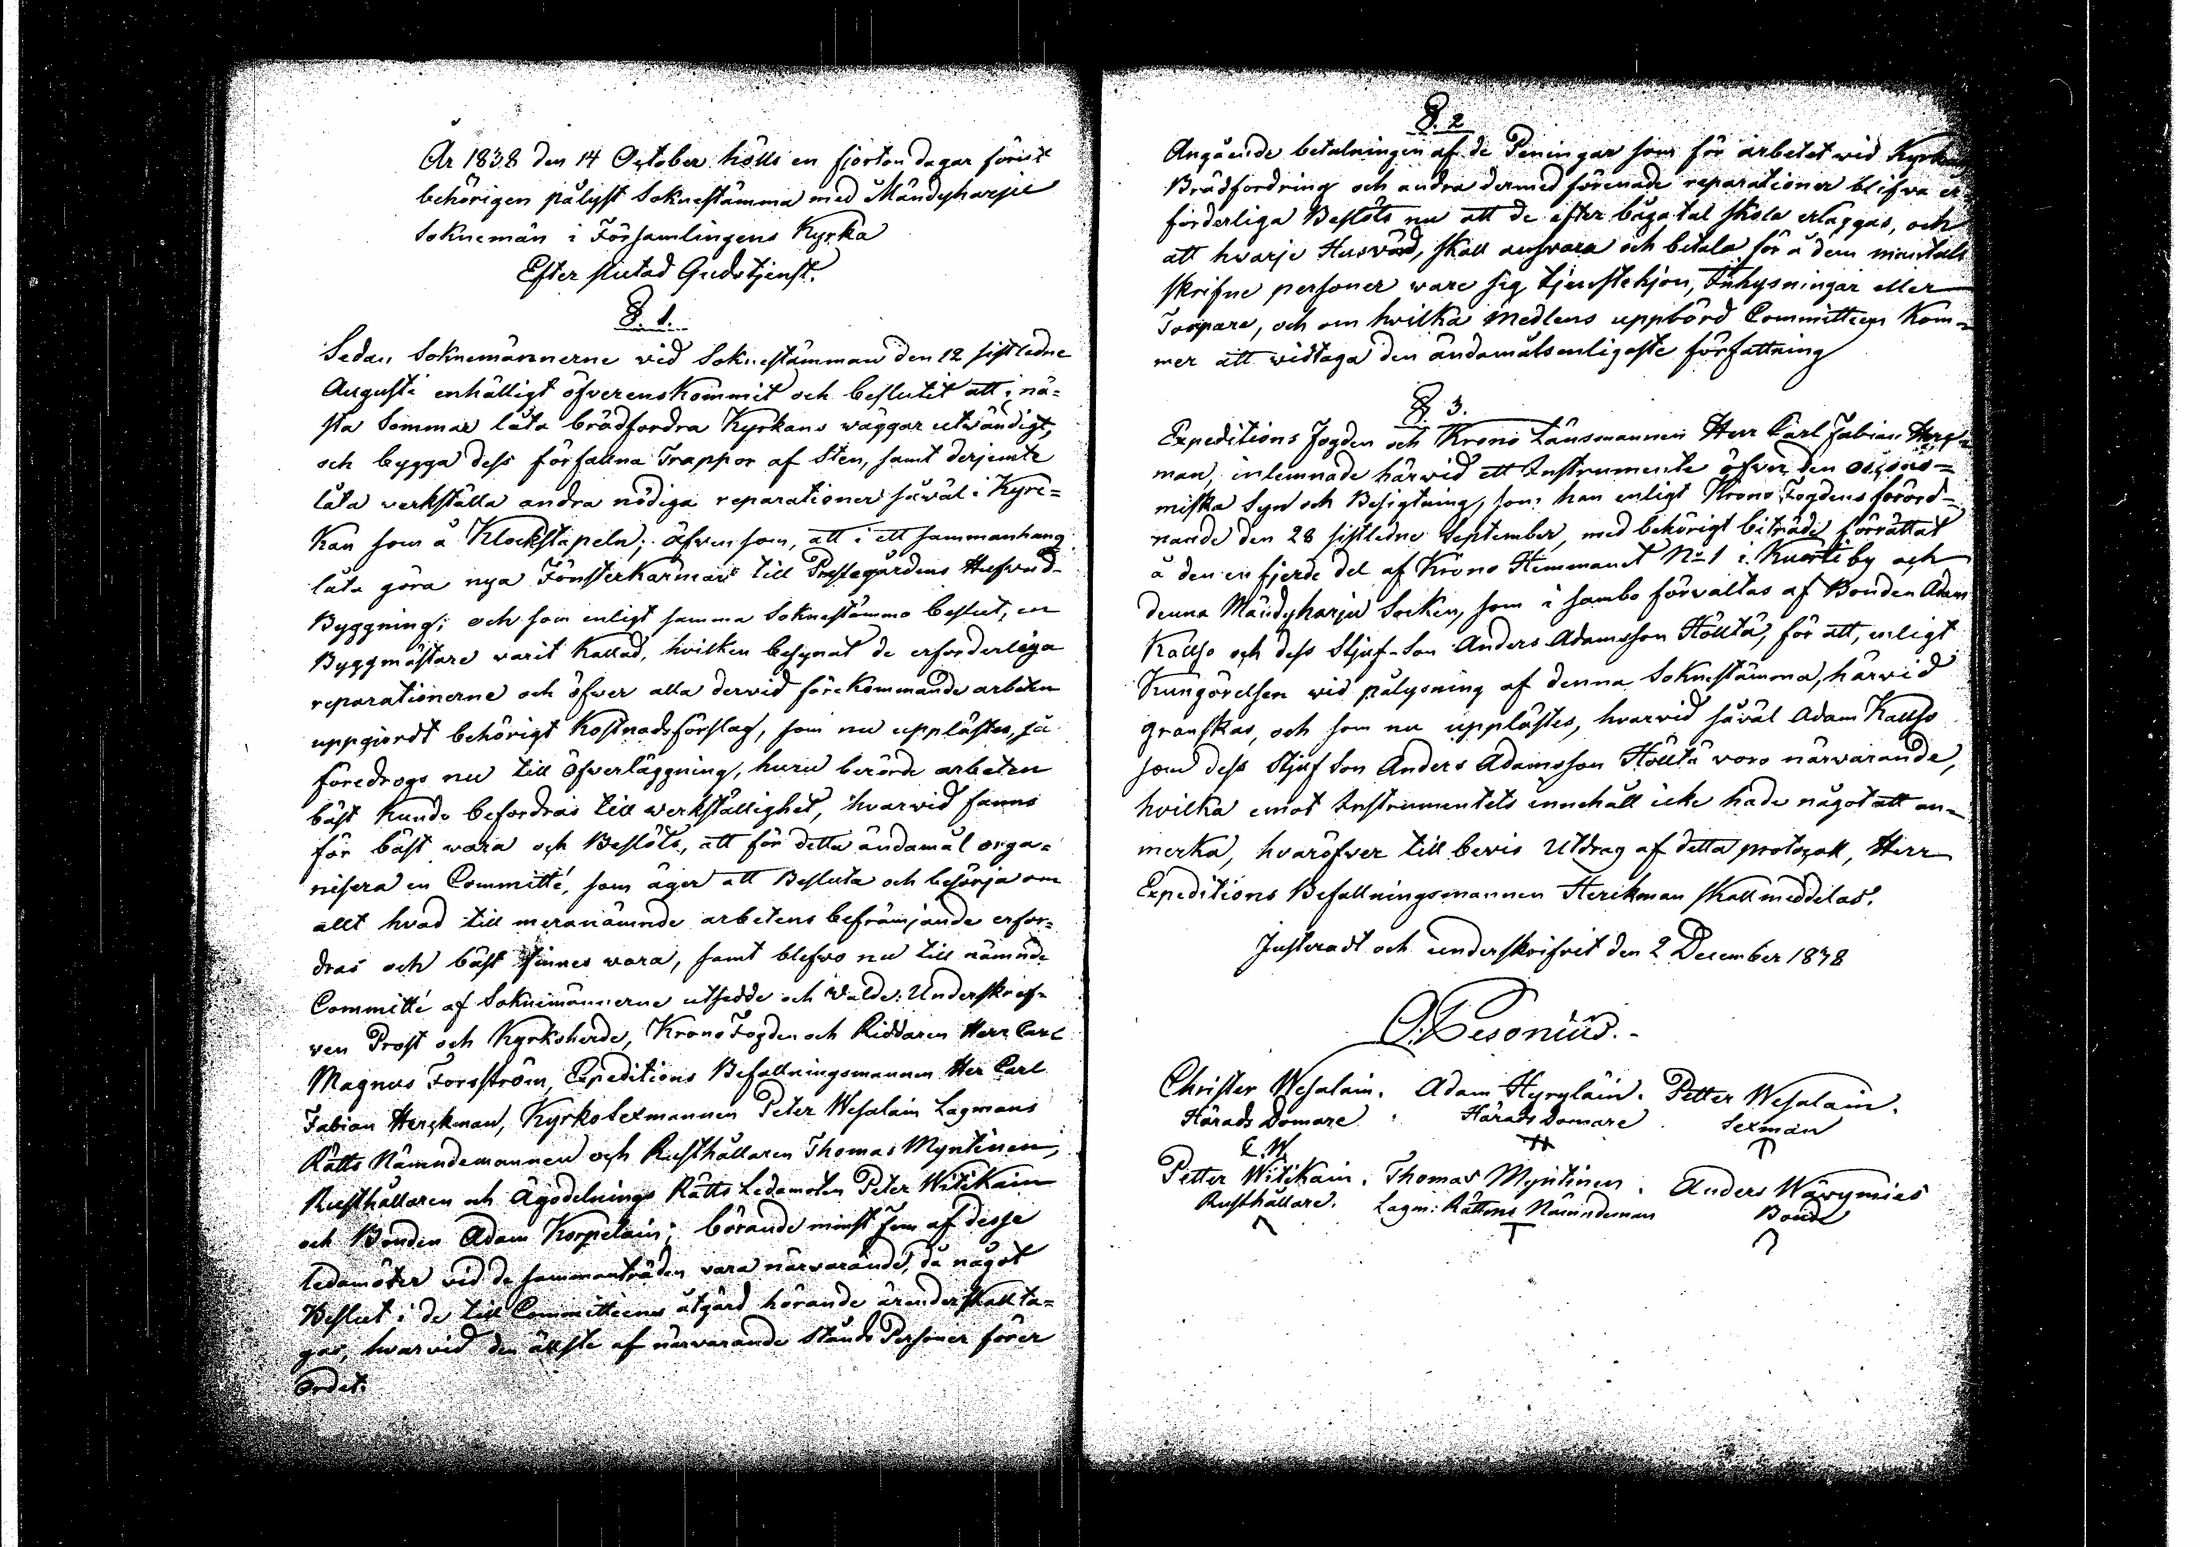 År 1838 den 14 October hölls en fjorton dagar förut
behörigen pålyst Soknestämma med Mändyharju
Soknemän i Församlingens Kyrka
Efter slutad Gudstjenst.
§. 1.
Sedan Soknemännerne vid Soknestämman den 12 sistledne
Augusti enhälligt öfverenskommit och beslutit att i nä=
sta Sommar låta brädfordra Kyrkans wäggar utwändigt,
och bygga dess förfallna Trappor af Sten, samt derjemte
låta verkställa andra nödiga reparationer såwäl i Kyr=
kan som å Klockstapeln; äfvensom, att i ett sammanhang
låta göra nya Fönsterkarmar till Prestegårdens Hufvud-
Byggning; och som enligt samma Soknestämmo beslut, en
Byggmästare varit kallad, hvilken besynat de erforderliga
reparationerne och öfwer alla dervid förekommande arbeten
uppgjordt behörigt Kostnadsförslag, som nu upplästes, så
föredrogs nu till öfverläggning, huru berörde arbeten
bäst kunde befordras till werkställighet, hvarvid fanns
för bäst wara och Beslöts, att för detta ändamål orga=
nisera en Committé, som äger att Besluta och besörja om
allt hvad till meranämnde arbetens befrämjande erfor=
dras och bäst finnes wara, samt blefwo nu till nämnde
Committé af Soknemännerne utsedde och walde: Underskref-
ven Prost och Kyrkoherde, Krono Fogden och Riddaren Herr Carl
Magnus Forsström, Expeditions Befallningsmannen Herr Carl
Fabian Herckman, Kyrko Sexmannen Peter Wesalain Lagmans
Rätts Nämndemannen och Rusthållaren Thomas Myntinen,
Rusthållaren och Ägodelnings Rätts Ledamoten Peter Witikain
och Bonden Adam Korpelain; börande minst fem af desse
ledamöter vid de sammanträden vara närvarande, då något
Beslut i de till Committéens åtgärd hörande ärender skall ta=
gas, hwarvid den äldste af närvarande Stånds Personer förer
ordet.
§. 2
Angående betalningen af de Peningar som för arbetet wid Kyrkans
Brädfordring och andra dermed förenade reparationer blifva er=
forderliga Beslöts nu att de efter bågatal skola erläggas, och
att hwarje Husvärd, skall answara och betala för å dem mantals
skrifne personer ware sig tjenstehjon, Inhysningar eller
Torpare, och om hvilka medlens uppbörd Committéen kom=
mer att widtaga den ändamålsenligaste författning
§. 3.
Expeditions Fogden och Krono Länsmannen Herr Carl Fabian Herck=
man, inlemnade härwid ett Instrumente öfver den oecono=
miska Syn och Besigtning, som han enligt Krono Fogdens förord-
nande den 28 sistledne September, med behörigt biträde förrättat
å den en fjerde del af Krono Hemmanet No 1 i Kuortti by och
denna Mändyharju Socken, som i sambo förvaltas af Bonden Adam
Kallso och dess Stjuf-Son Anders Adamsson Höltä, för att, enligt
Kungörelsen wid pålysning af denna Soknestämma, härwid
granskas, och som nu upplästes, hvarvid såväl Adam Kallso
som dess Stjuf Son Anders Adamsson Höltä voro närvarande,
hvilka emot Instrumentets innehåll icke hade något att an=
merka, hvaröfwer till bevis Utdrag af detta protocoll, Herr
Expeditions Befallningsmannen Herckman skall meddelas.
Justeradt och underskrifvit den 2 December 1838
O. Cesonius.-
Christer Wesalain. Adam Hyrylain. Petter Wesalain.
Härads Domare. Härads Domare. Sexman
C. W.
Petter Witikain. Thomas Myntinen. Anders Wärymies
Rusthållare. Lagm: Rättens Nämndeman Bonde